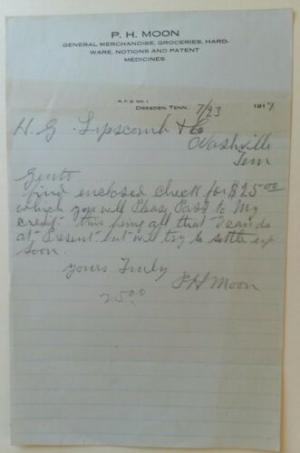 P. H. MOON
GENERAL MERCHANDISE, GROCERIES, HARD-
WARE, NOTIONS AND PATENT
MEDICINES
R. F. D. NO. 1
DRESDEN TENN. 7/23 1917
H. G. Lipscomb & Co
Nashville
Tenn
Gents
find enclosed check for $25.00
which you will Please Pass to my
credit this being all that I can do
at Present but will try to settle up
soon.
yours Truly
P H Moon
25.00